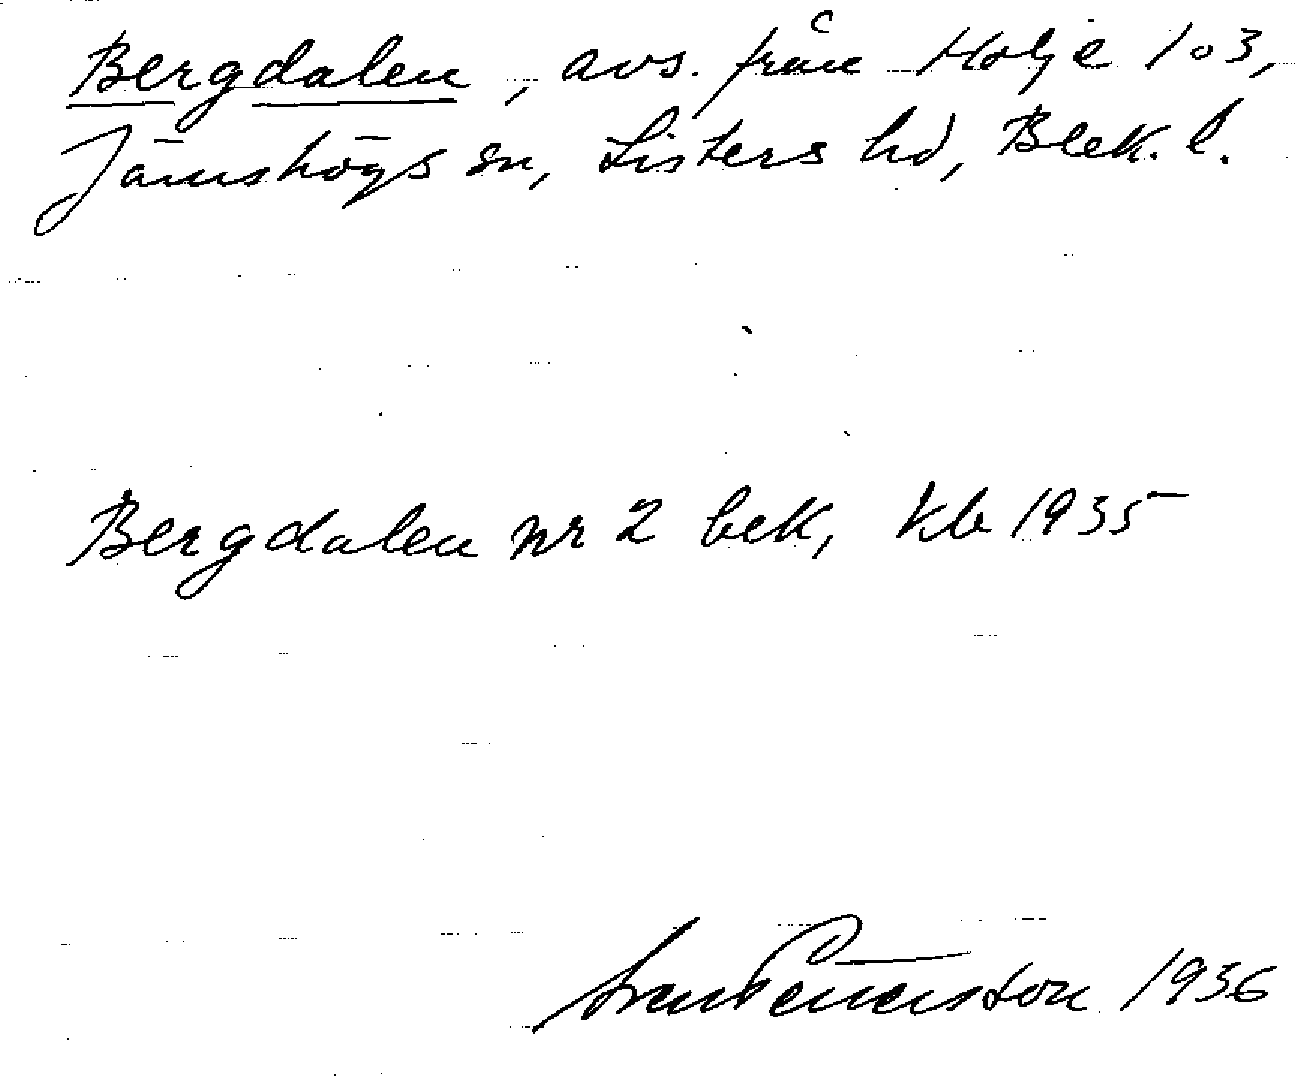 Bergdalen, avs. från Holje 103,
Jämshögs sn, Listers hd, Blek. l.
Bergdalen nr 2 bek, kb 1935
1936